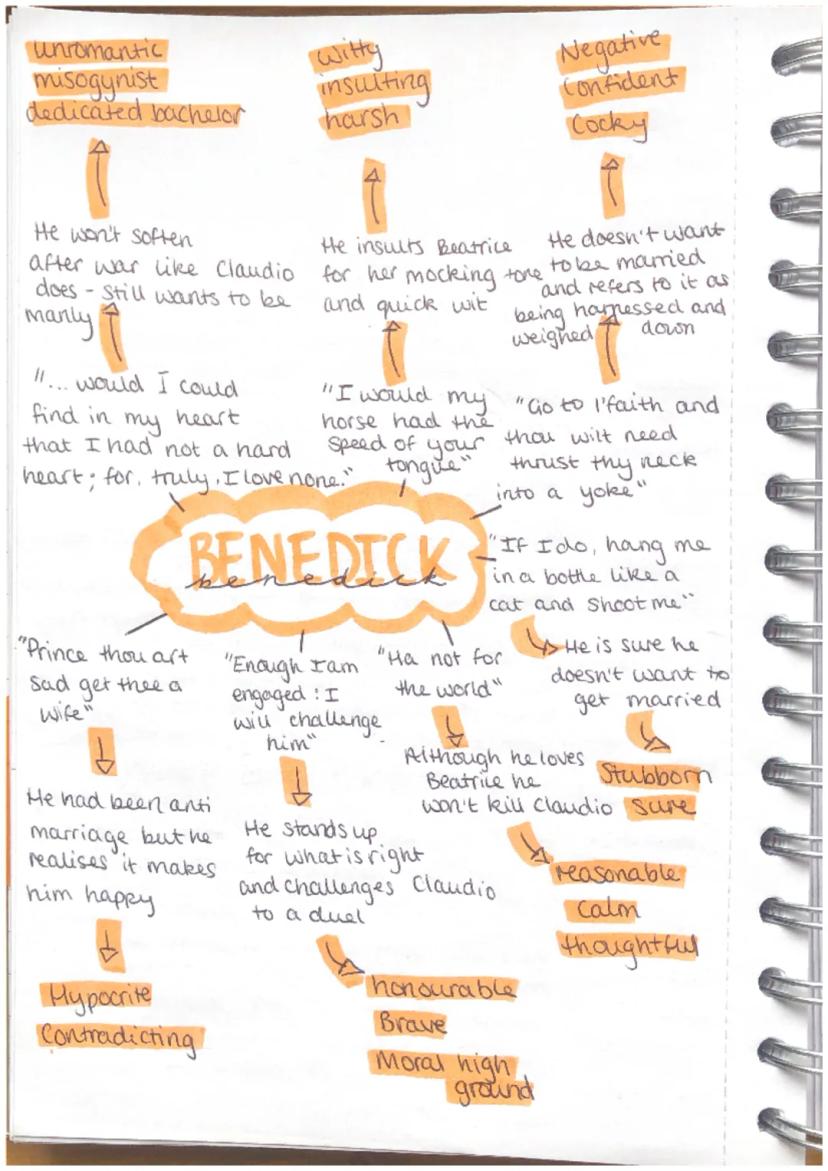 unromantic
misogynist
dedicated bachelor
He won't soften
after war like Claudio
does - still wants to be
manly
"... would I could
find in my heart
that I had not a hard
heart; for, truly, I love none."
Witty
insulting
harsh
He insults Beatrice
for her mocking tone
and quick wit
"I would my
horse had the
speed of your
tongue"
Negative
Confident
Cocky
He doesn't want
to be married
and refers to it as
being harnessed and
weighed down
"Go to I'faith and
thou wilt need
thrust thy neck
into a yoke"
BENEDICK
benedick
"If I do, hang me
in a bottle like a
cat and shoot me"
He is sure he
doesn't want to
get married
Stubborn
Sure
"Prince thou art
sad get thee a
wife"
He had been anti
marriage but he
realises it makes
him happy
Hypocrite
Contradicting
"Enough I am
engaged: I
will challenge
him"
He stands up
for what is right
and challenges Claudio
to a duel
honourable
Brave
Moral high
ground
"Ha not for
the world"
Although he loves
Beatrice he
won't kill Claudio
reasonable
Calm
thoughtful